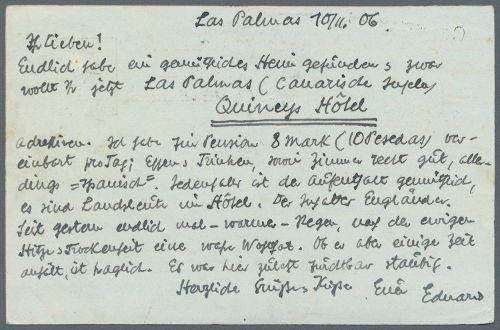 Las Palmas 10/II. 06.
Ihr Lieben!
Endlich habe ein gemütliches Heim gefunden u. zwar
wollt Ihr jetzt Las Palmas (Canarische Inseln)
Quineys Hôtel
adressiren. Ich habe für Pension 8 Mark (10 Pesedas) ver-
einbart pro Tag; Essen u. Trinken, sowie Zimmer recht gut, aller-
dings "spanisch". Jedenfalls ist der Aufenthalt gemütlich,
es sind Landsleute im Hôtel. Der Inhaber Engländer.
Seit gestern endlich mal - warmer - Regen, nach der ewigen
Hitze u. Trockenheit eine wahre Wohltat. Ob er aber einige Zeit
anhält, ist fraglich. Es war hier zuletzt furchtbar staubig.
Herzliche Grüsse u. Küsse Euer Eduard